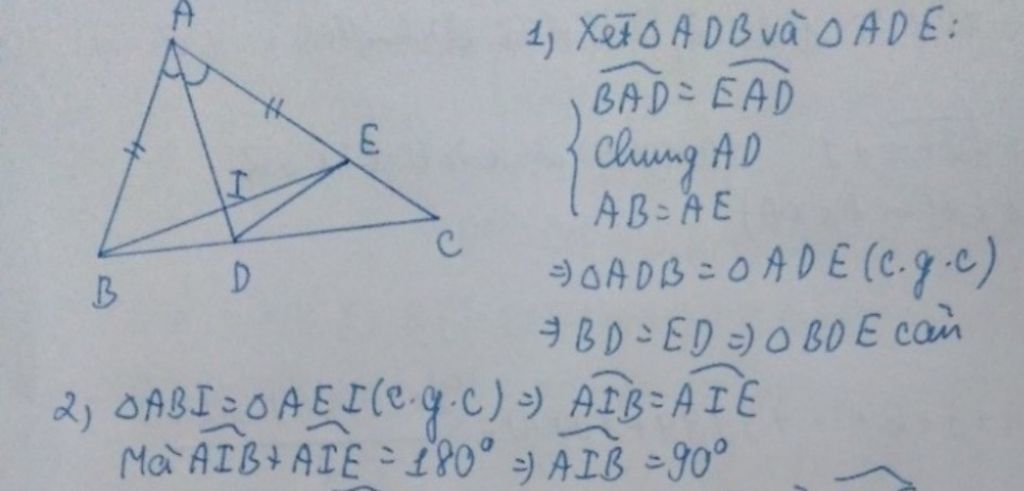 A
E
I
B
D
C
1, Xét △ADB và △ADE:
BAD = EAD
Chung AD
AB = AE
⇒ △ADB = △ADE (c.g.c)
⇒ BD = ED ⇒ △BDE cân
2, △ABI = △AEI (c.g.c) ⇒ AIB = AIE
Mà AIB + AIE = 180° ⇒ AIB = 90°